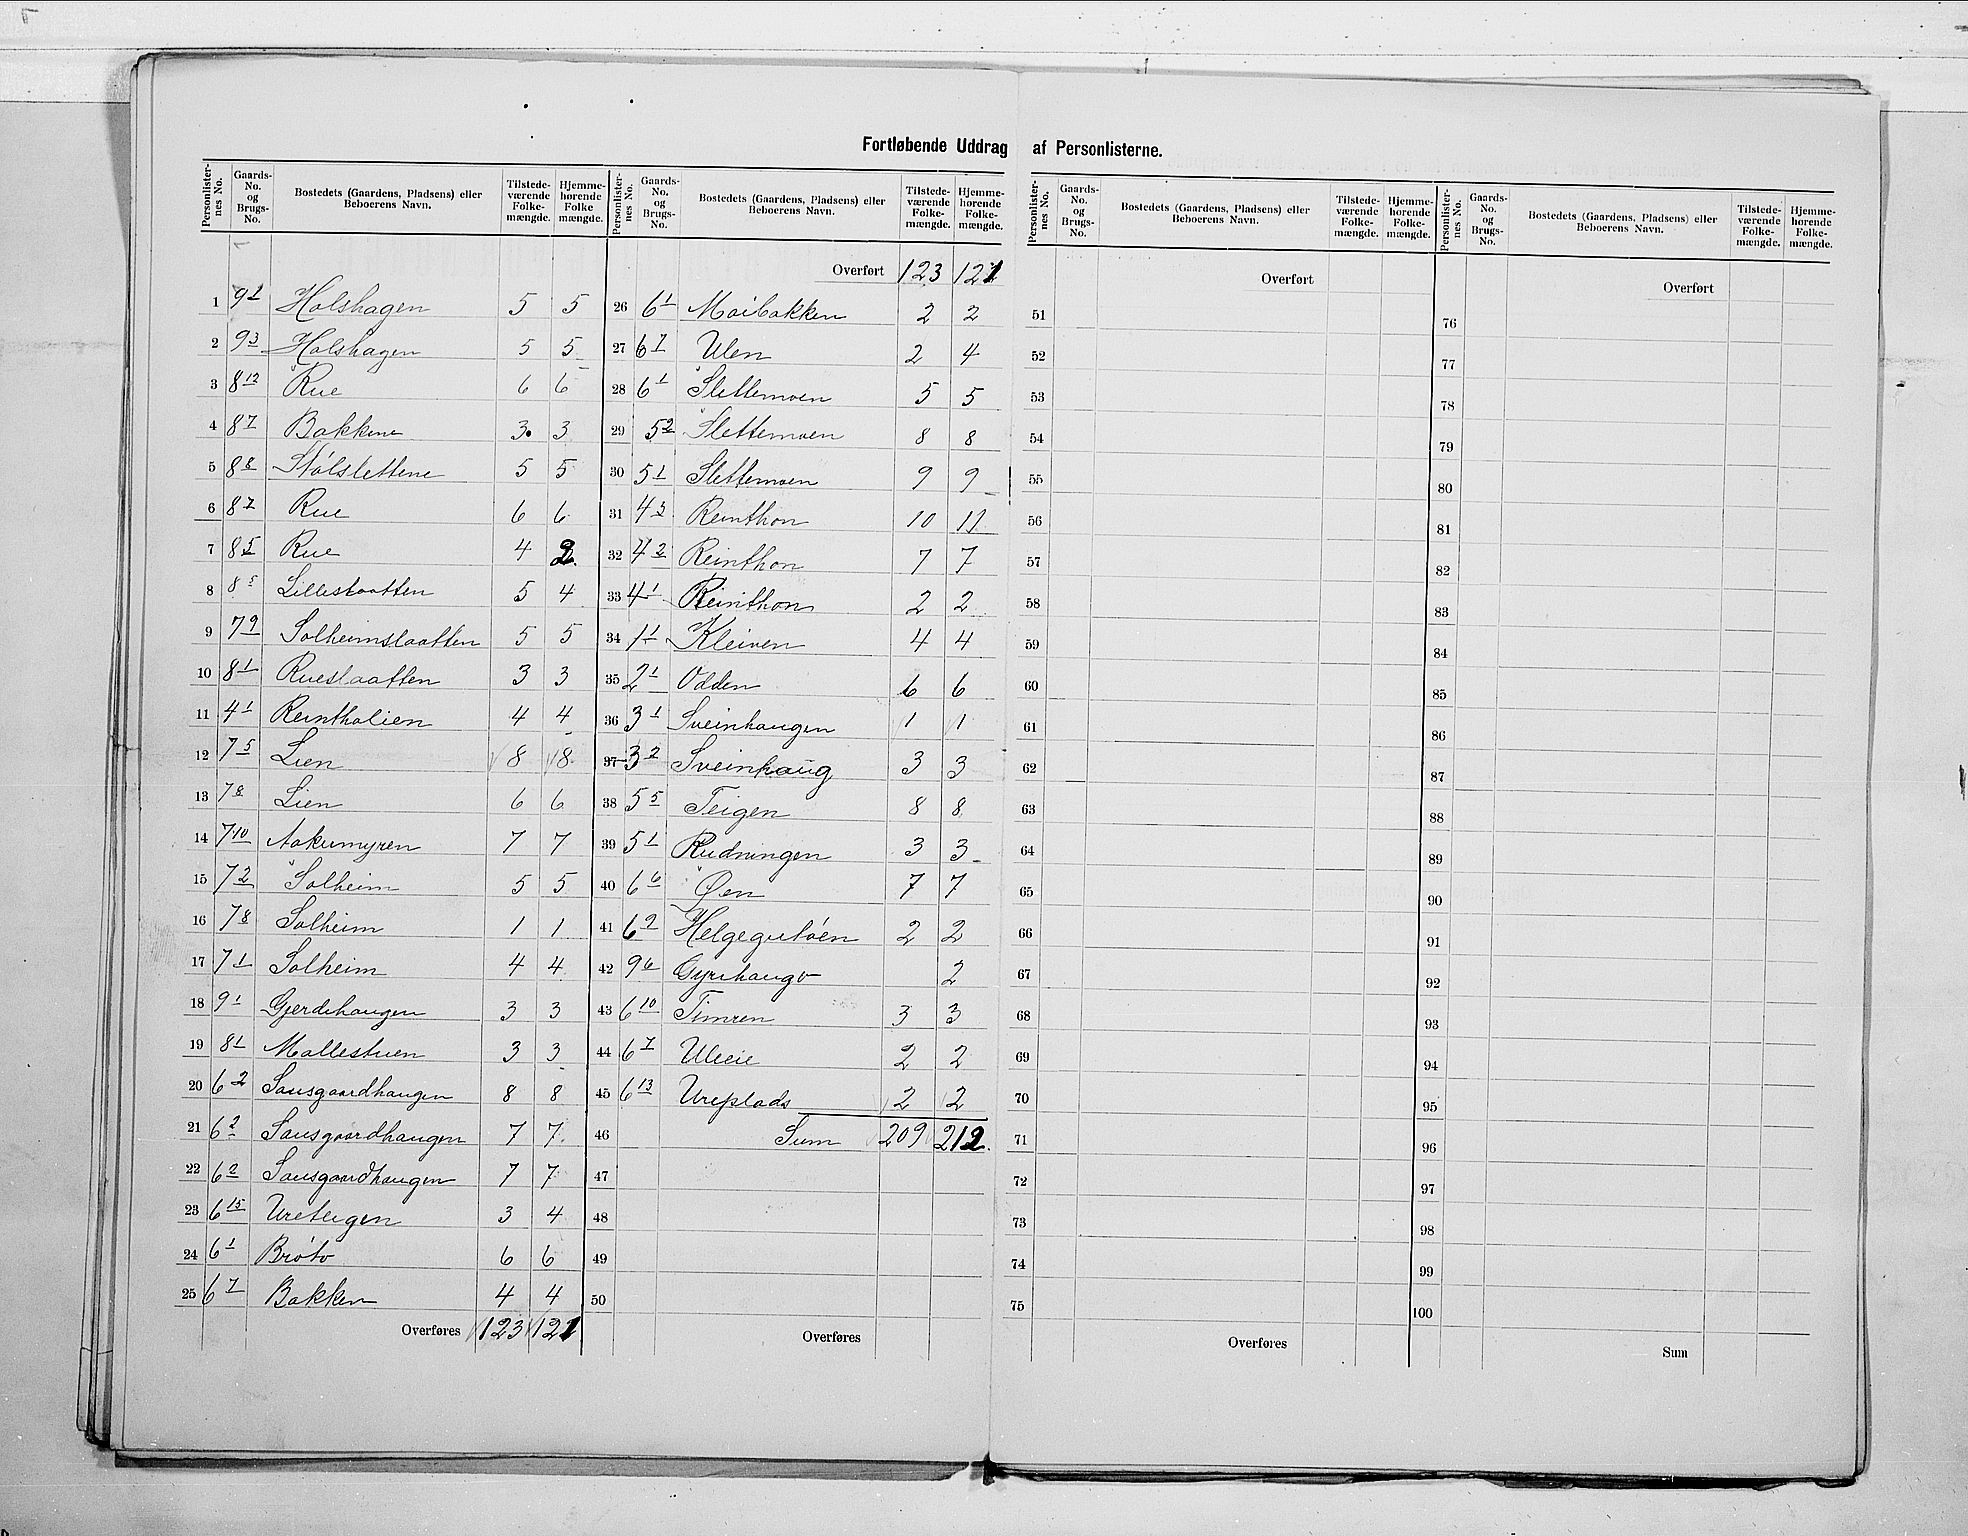 Fortløbende Uddrag af Personlisterne.
Personlister-nes No. Gaards-No. og Brugs-No. Bostedets (Gaardens, Pladsens) eller Beboerens Navn. Tilstede-værende Folke-mængde. Hjemme-hørende Folke mængde.
1 9 1 Holshagen 5 5
2 9 3 Holshagen 5 5
3 8 12 Rue 6 6
4 8 7 Bakkene 3 3
5 8 8 Stølslettene 5 5
6 8 7 Rue 6 6
7 8 5 Rue 4 2
8 8 5 Lilleslaatten 5 4
9 7 9 Solheimslaatten 5 5
10 8 1 Rueslaatten 3 3
11 4 1 Reintholien 4 4
12 7 5 Lien 8 8
13 7 8 Lien 6 6
14 7 10 Aakermyren 7 7
15 7 2 Solheim 5 5
16 7 8 Solheim 1 1
17 7 1 Solheim 4 4
18 9 1 Gjerdehaugen 3 3
19 8 1 Mallestuen 3 3
20 6 2 Sausgaardhaugen 8 8
21 6 2 Sausgaardhaugen 7 7
22 6 2 Sausgaardhaugen 7 7
23 6 15 Ureteigen 3 4
24 6 1 Brøto 6 6
25 6 7 Bakken 4 4
Overføres 123 121
Personlister-nes No. Gaards-No. og Brugs-No. Bostedets (Gaardens, Pladsens) eller Beboerens Navn. Tilstede-værende Folke-mængde. Hjemme-hørende Folke-mængde.
Overført 123 121
26 6 1 Moibakken 2 2
27 6 7 Ulen 2 4
28 6 1 Slettemoen 5 5
29 5 2 Slettemoen 8 8
30 5 1 Slettemoen 9 9
31 4 3 Reinthon 10 11
32 4 2 Reinthon 7 7
33 4 1 Reinthon 2 2
34 1 1 Kleiven 4 4
35 2 1 Odden 6 6
36 3 1 Sveinhaugen 1 1
37 3 2 Sveinhaug 3 3
38 5 5 Teigen 8 8
39 5 1 Rudningen 3 3
40 6 6 Øen 7 7
41 6 2 Helgegutøen 2 2
42 9 6 Gyrihaugo 2
43 6 10 Timren 3 3
44 6 7 2 2
45 6 13 Ureplads 2 2
46 Sum 209 212
47
48
49
50
Overføres
Personlister-nes No. Gaards-No. og Brugs-No. Bostedets (Gaardens, Pladsens) eller Beboerens Navn. Tilstede-værende Folke-mængde. Hjemme-hørende Folke-mængde.
Overført
51
52
53
54
55
56
57
58
59
60
61
62
63
64
65
66
67
68
69
70
71
72
73
74
75
Overføres
Personlister-nes No. Gaards-No. og Brugs-No. Bostedets (Gaardens, Pladsens) eller Beboerens Navn. Tilstede-værende Folke-mængde. Hjemme-hørende Folke-mængde.
Overført
76
77
78
79
80
81
82
83
84
85
86
87
88
89
90
91
92
93
94
95
96
97
98
99
100
Sum